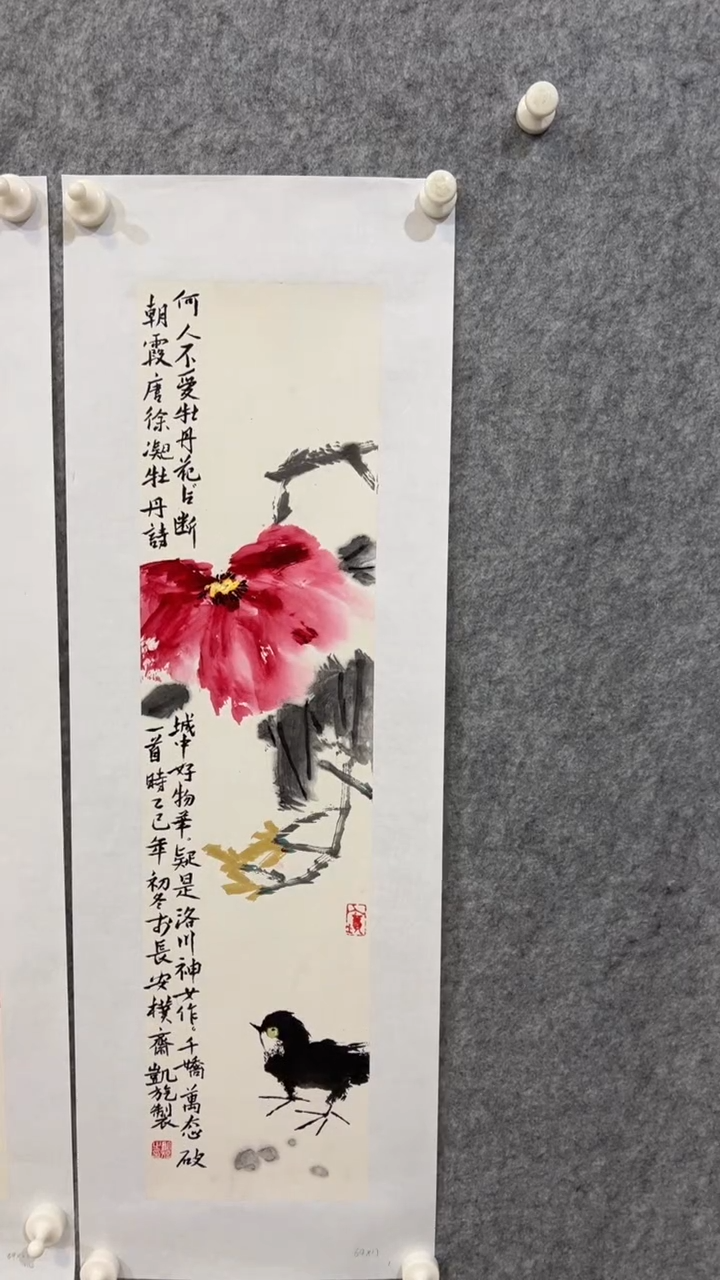 何人不愛牡丹花占断城中好物華疑是洛川神女作千嬌萬态破
朝霞唐徐凝牡丹詩一首時乙巳年初冬於長安樸齋凱旋製